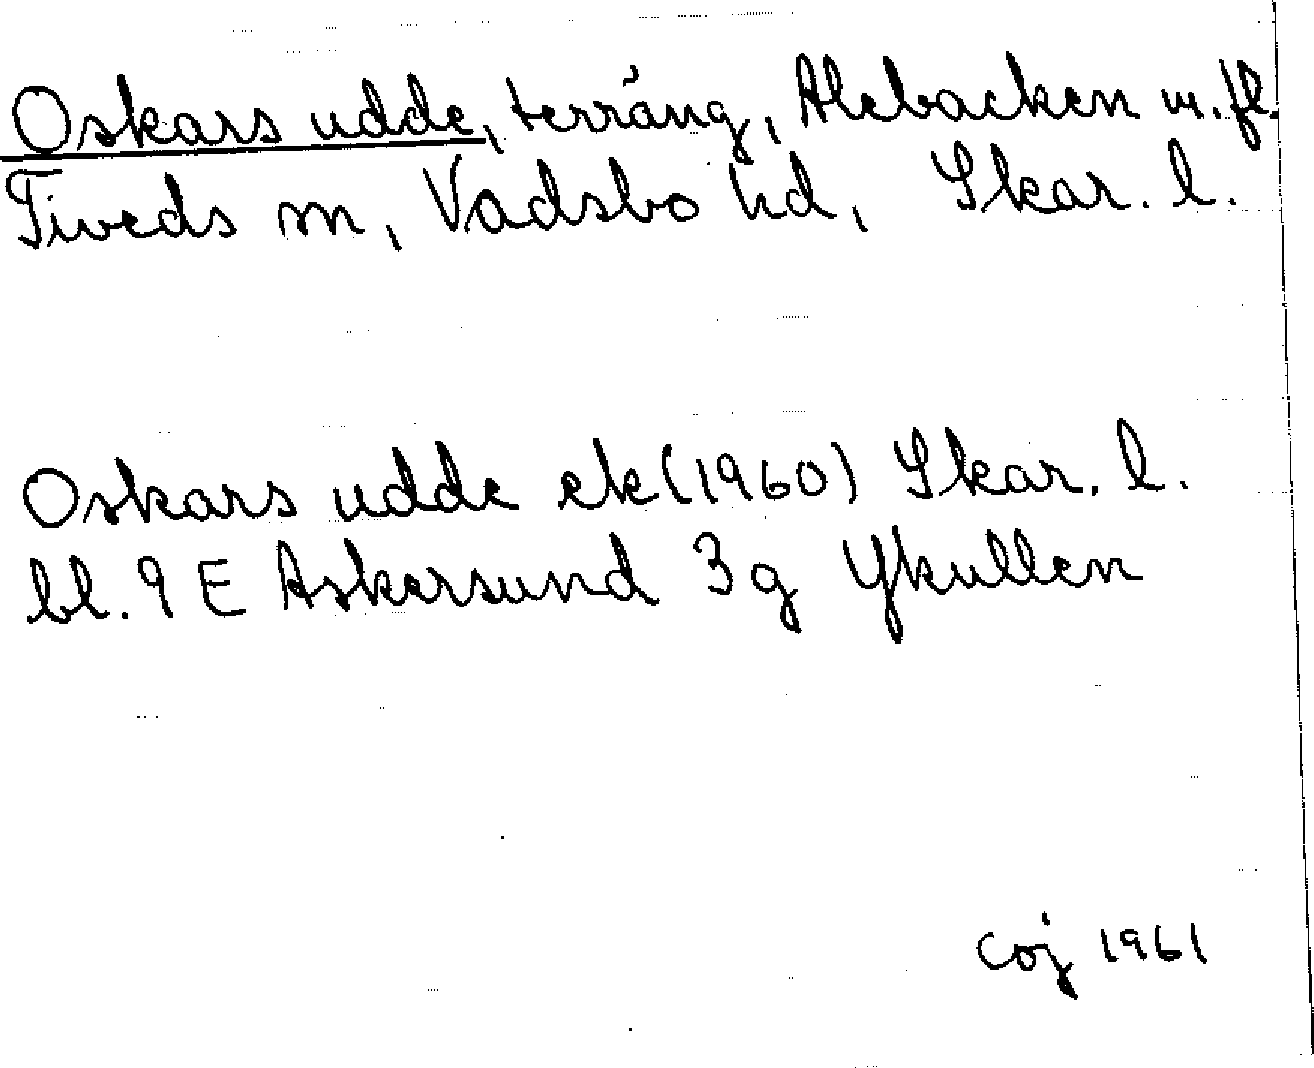 Oskars udde, terräng, Alebacken m.fl.
Tiveds sn, Vadsbo hd, Skar. l.
Oskars udde ek (1960) Skar. l.
bl. 9 E Askersund 3g Ykullen
Coj 1961